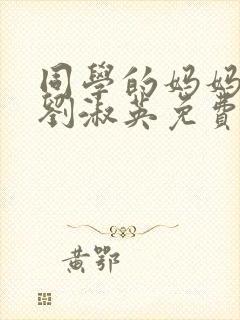 同學的媽媽
劉淑英免費
黃鄂